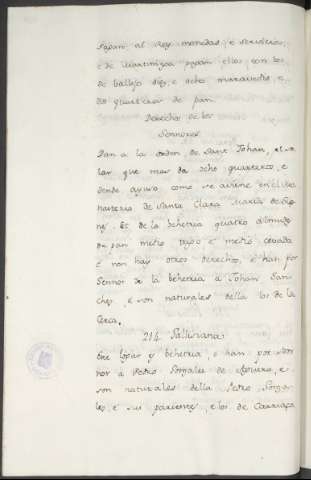 Pagan al Rey monedas e servicios,
e de Martiniega pagan ellos con los
de Vallejo diez e ocho maravedis e
dos quarteros de pan.
Derechos de los
Sennores
Dan a la orden de Sant Johan, el so
lar que mas da ocho quarteros, e
dende ayuso como se aviene en el Mo
nasterio de Santa Clara
Es de la behetria quatro almudes
de pan metio trigo e metio cevada
e non hay otros derechos, e han por
Sennor de la behetria a Johan San
chez, e son naturales della los de la
Cerca.
214
Este logar es behetria, e han por Sen
nor a Pedro Gonzalez de Aguero, e
son naturales della Pedro Gonza
lez, e sus parientes, e los de Carriazo